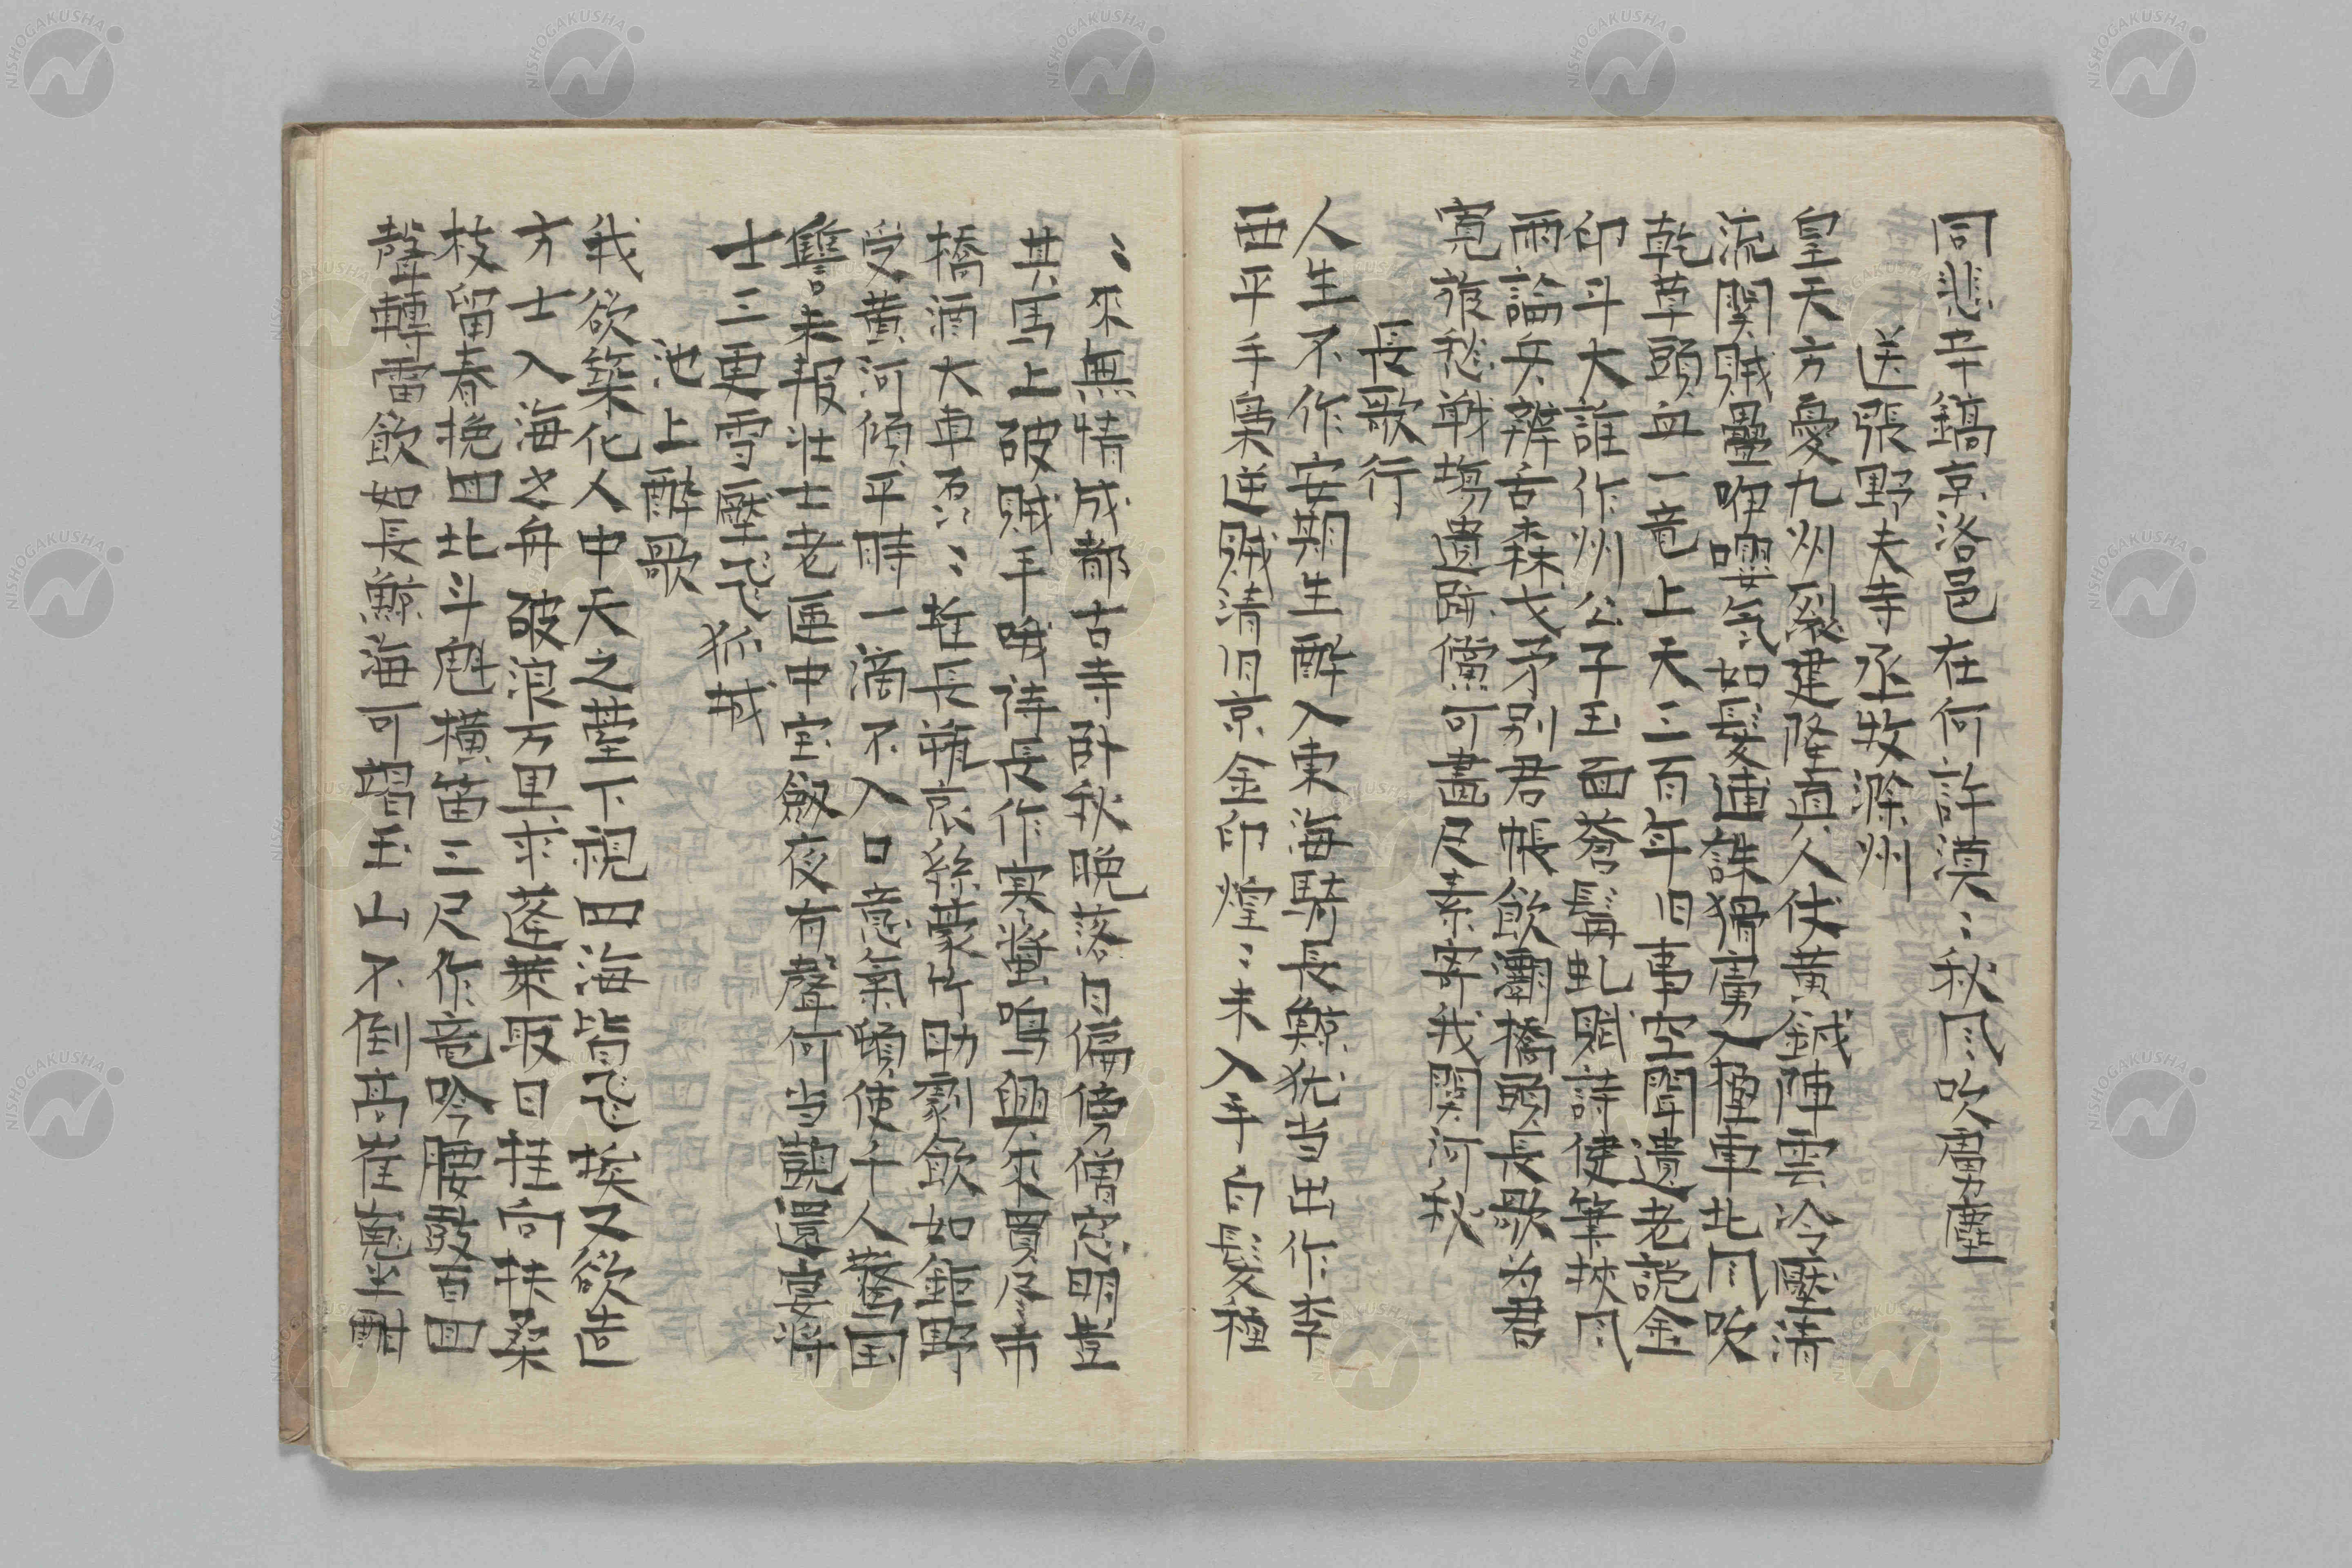 同悲辛鎬京洛邑在何許漠〻秋风吹虜塵
送張野夫寺丞牧滁州
皇天方憂九州裂建隆真人仗黃鉞陣雲冷壓清
流関賊壘咿嚶気如髪連誅猾虜入檻車北风吹
乾草頭血一竜上天三百年旧事空聞遺老説金
印斗大誰作州公子玉面蒼髯虬賦詩健筆挾风
雨論兵辨舌森戈矛別君帳飲灞橋頭長歌為君
寛旅愁戦場遺跡儻可畫尺素寄我関河秋
長歌行
人生不作安期生酔入東海騎長鯨猶当出作李
西平手梟逆賊清旧京金印煌〻未入手白髪種
〻来無情成都古寺臥秋晩落日偏傍僧窓明豈
其馬上破賊手哦詩長作寒螿鳴興来買尽市
橋酒大車磊〻堆長瓶哀絲豪竹助劇飲如鉅野
受黄河傾平時一滴不入口意氣頓使千人驚国
讐未報壮士老匣中宝劔夜有聲何当凱還宴将
士三更雪壓飛狐城
池上酔歌
我欲築化人中天之臺下視四海皆飛埃又欲造
方士入海之舟破浪万里求蓬莱取日挂向扶桑
枝留春挽回北斗魁横笛三尺作竜吟腰鼓百面
聲轉雷飲如長鯨海可竭玉山不倒高崔嵬半酣
NISHOGAKUSHA